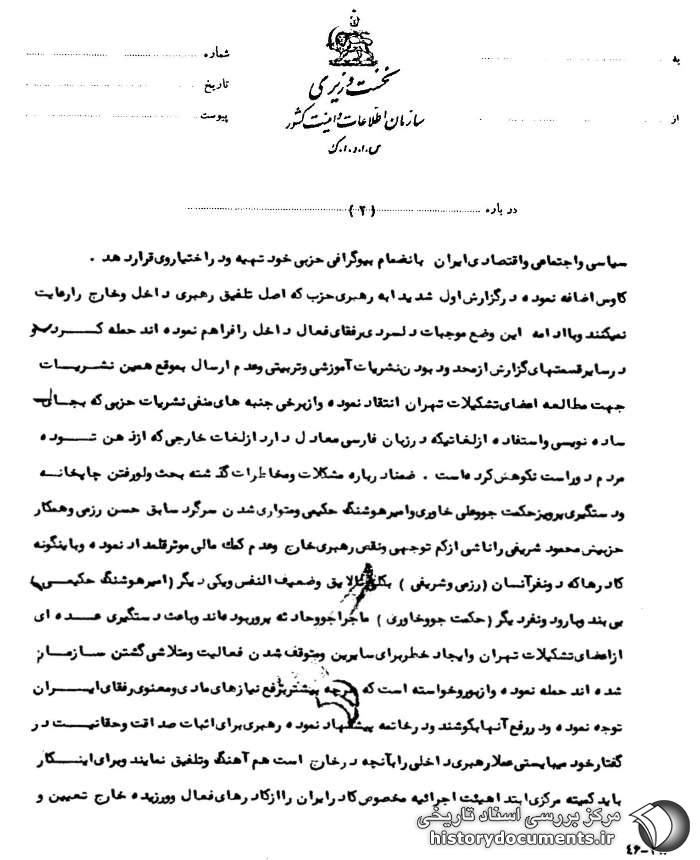 نخست وزیری
سازمان اطلاعات و امنیت کشور
س.ا.و.ا.ک
به
از
شماره
تاریخ
پیوست
درباره (۲)
سیاسی و اجتماعی و اقتصادی ایران بانضمام بیوگرافی حزبی خود تهیه و در اختیار وی قرار دهد .
کاوس اضافه نموده در گزارش اول شدیدا به رهبری حزب که اصل تلفیق رهبری داخل و خارج را رعایت
نمیکنند و با ادامه این وضع موجبات دلسردی رفقای فعال داخل را فراهم نموده اند حمله کرده و
در سایر قسمتهای گزارش از محدود بودن نشریات آموزشی و تربیتی و عدم ارسال بموقع همین نشریات
جهت مطالعه اعضای تشکیلات تهران انتقاد نموده و از برخی جنبه های منفی نشریات حزبی که بجای
ساده نویسی و استفاده از لغاتیکه در زبان فارسی معادل دارد از لغات خارجی که از ذهن توده
مردم دور است نکوهش کرده است . ضمنا درباره مشکلات و مخاطرات گذشته بحث و لو رفتن چاپخانه
و دستگیری پرویز حکمت جو و علی خاوری و امیرهوشنگ حکیمی و متواری شدن سرگرد سابق حسن رزمی و همکار
حزبیش محمود شریفی را ناشی از کم توجهی و نقص رهبری خارج و عدم کمک مالی موثر قلمداد نموده و باینگونه
کادرها که دو نفر آنان (رزمی و شریفی ) بکلی نالایق و ضعیف النفس و یکی دیگر (امیرهوشنگ حکیمی )
بی بند و بار و دو نفر دیگر (حکمت جو و خاوری ) ماجراجو و حادثه پرور بوده اند و باعث دستگیری عده ای
از اعضای تشکیلات تهران و ایجاد خطر برای سایرین و متوقف شدن فعالیت و متلاشی گشتن سازمان
شده اند حمله نموده و از بوروخواسته است که هرچه بیشتر برفع نیازهای مادی و معنوی رفقای ایران
توجه نموده و در رفع آنها بکوشند و در خاتمه پیشنهاد نموده رهبری برای اثبات صداقت و حقانیت در
گفتار خود میبایستی عملا رهبری داخلی را با آنچه در خارج است هم آهنگ و تلفیق نمایند و برای اینکار
باید کمیته مرکزی ابتدا هیئت اجرائیه مخصوص کادر ایران را از کادرهای فعال و ورزیده خارج تعیین و
مرکز بررسی اسناد تاریخی
historydocuments.ir